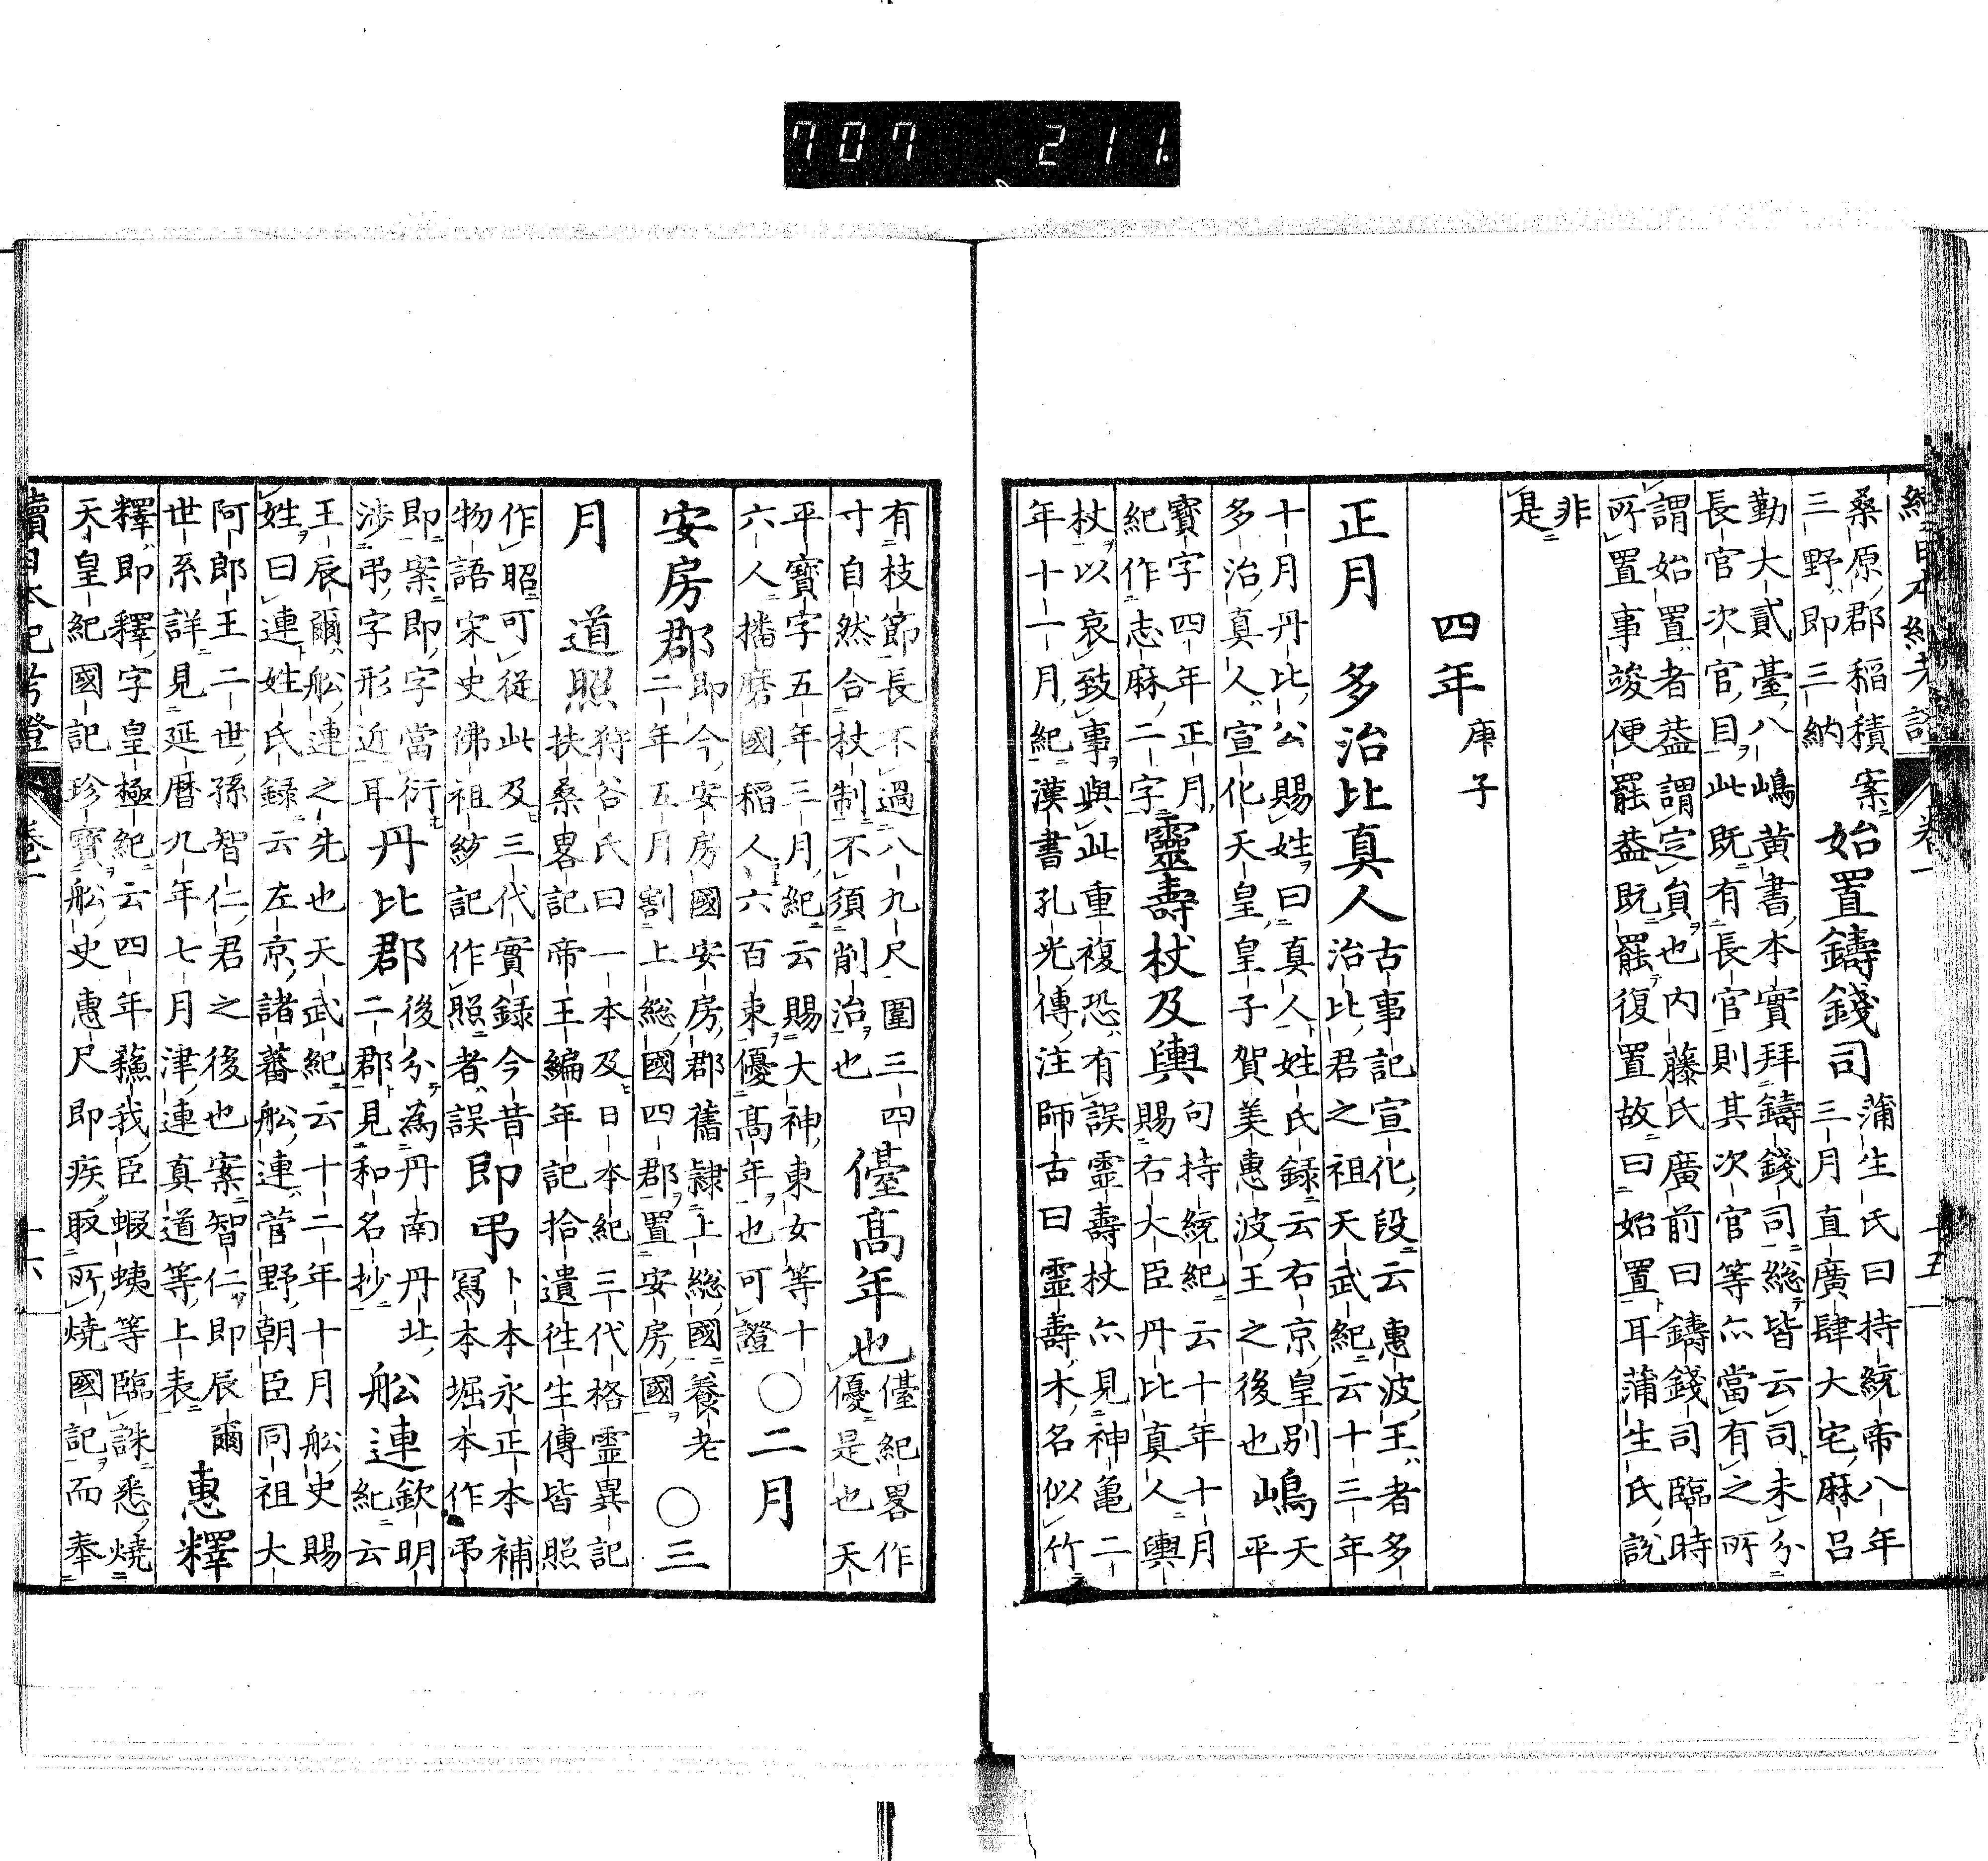 707 211.
續日本紀考證 卷一 十五
桑原郡稻積案
三野即三納
始置鑄錢司
蒲生氏曰持統帝八年
三月直廣肆大宅麻呂
勤大貳臺八嶋黃書本實拜鑄錢司總皆云司未分
長官次官目此既有長官則其次官等亦當有之所
謂始置者葢謂定員也内藤氏廣前曰鑄錢司臨時
所置事竣便罷葢既罷復置故曰始置耳蒲生氏說
非
是
四年 庚子
正月 多治比真人
古事記宣化段云惠波王者多
治比君之祖天武紀云十三年
十月丹比公賜姓曰真人姓氏録云右京皇別
多治真人宣化天皇皇子賀美惠波王之後也
嶋
天
平
寶字四年正月
紀作志麻二字
靈壽杖及輿
句持統紀云十年十月
賜右大臣丹比真人輿
杖以哀致事與此重複恐有誤靈壽杖亦見神亀二
年十一月紀漢書孔光傳注師古曰靈壽木名似竹
有枝節長不過八九尺圍三四
寸自然合杖制不須削治也
儓髙年也
儓紀畧作
優是也天
平寶字五年三月紀云賜大神東女等十
六人播磨國稻人六百束優髙年也可證
○二月
安房郡
即今安房國安房郡舊隷上総國養老
二年五月割上総國四郡置安房國
○三
月 道照
狩谷氏曰一本及日本紀三代格靈異記
扶桑畧記帝王編年記拾遺往生傳皆照
作昭可從此及三代實録今昔
物語宋史佛祖紡記作照者誤
即弔
卜本永正本補
寫本堀本作弔
即案即字當衍
渉弔字形近耳
丹比郡
後分為丹南丹北
二郡見和名抄
舩連
欽明
紀云
王辰爾舩連之先也天武紀云十二年十月舩史賜
姓曰連姓氏録云左京諸蕃舩連菅野朝臣同祖大
阿郎王二世孫智仁君之後也案智仁即辰爾
世系詳見延暦九年七月津連真道等上表
惠釋
釋即釋字皇極紀云四年蘓我臣蝦蛦等臨誅悉燒
天皇紀國記珍寶舩史惠尺即疾取所燒國記而奉
續日本紀考證 卷一 十六